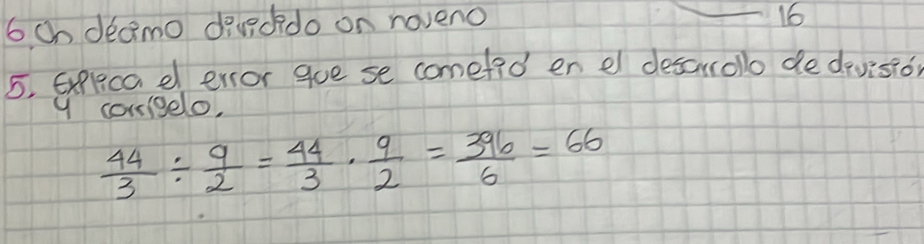 6. Un décimo dividido on noveno — 16
5. Explica el error que se cometió en el desarrollo de división
y corrígelo.
44/3 ÷ 9/2 = 44/3 · 9/2 = 396/6 = 66